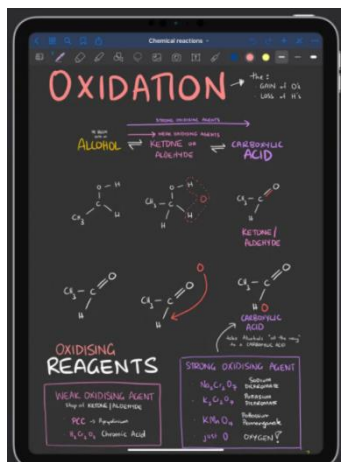 Chemical reactions
OXIDATION → the:
GAIN of O's
LOSS of H's
STRONG OXIDISING AGENTS
WEAK OXIDISING AGENTS
ALCOHOL ⇌ KETONE or ALDEHYDE ⇌ CARBOXYLIC ACID
O – H
CH₃ – C
H
O – H
CH₃ – C
H
O
O
CH₃ – C
KETONE/
ALDEHYDE
O
CH₃ – C
H
O
O
CH₃ – C
H
O
CH₃ – C
H O
CARBOXYLIC
ACID
take Alcohols "all the way"
to a CARBOXYLIC ACID
OXIDISING
REAGENTS
WEAK OXIDISING AGENT
stop at KETONE/ALDEHYDE
PCC → Pyridinium
H₂CrO₄ Chromic Acid
STRONG OXIDISING AGENT
Na₂Cr₂O₇ Sodium Dicromate
K₂Cr₂O₇ Potassium Dicromate
KMnO₄ Potassium Permanganate
just O OXYGEN!